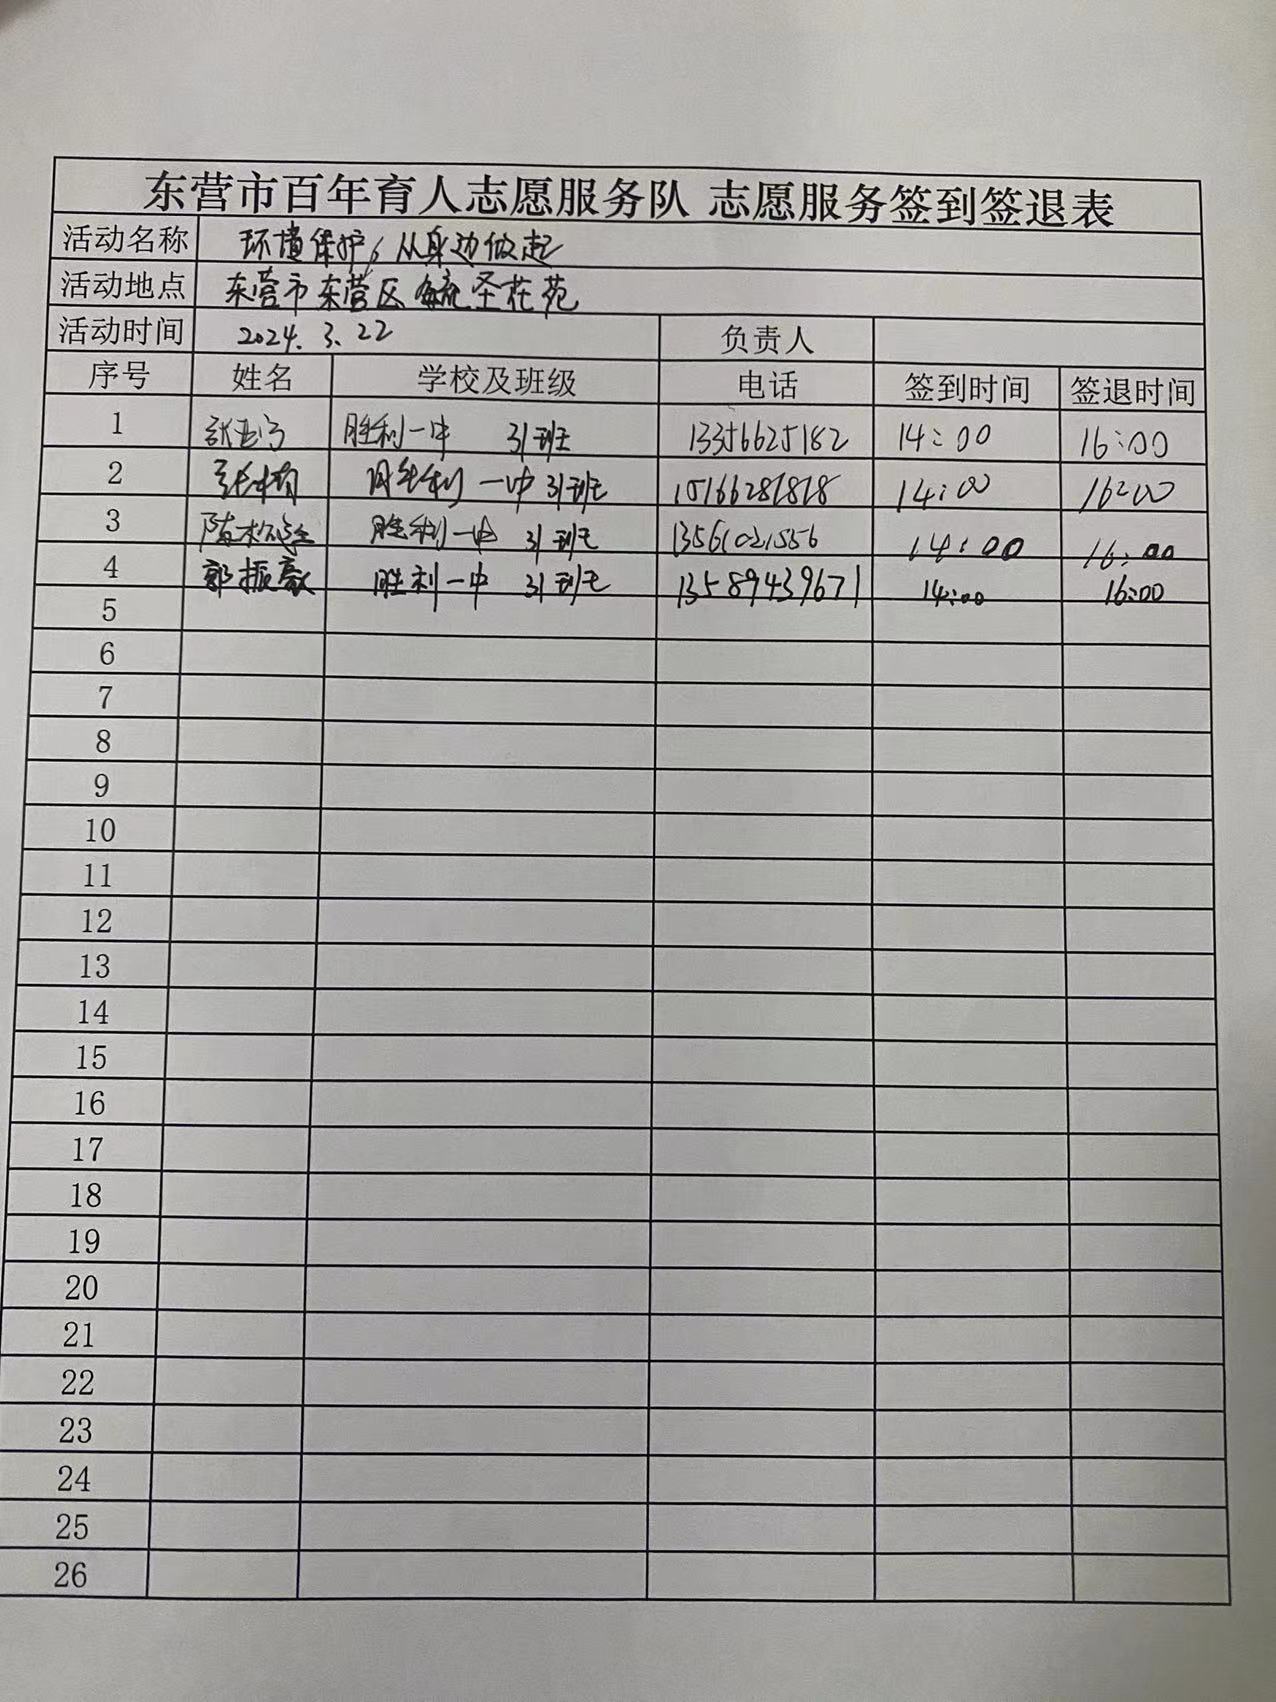 东营市百年育人志愿服务队 志愿服务签到签退表
活动名称 环境保护，从身边做起
活动地点 东营市东营区 圣花苑
活动时间 2024.3.22 负责人
序号 姓名 学校及班级 电话 签到时间 签退时间
1 胜利一中 31班 13356625182 14:00 16:00
2 胜利一中 31班 15166281818 14:00 16:00
3 胜利一中 31班 13561021556 14:00 16:00
4 郭振豪 胜利一中 31班 13589439671 14:00 16:00
5
6
7
8
9
10
11
12
13
14
15
16
17
18
19
20
21
22
23
24
25
26